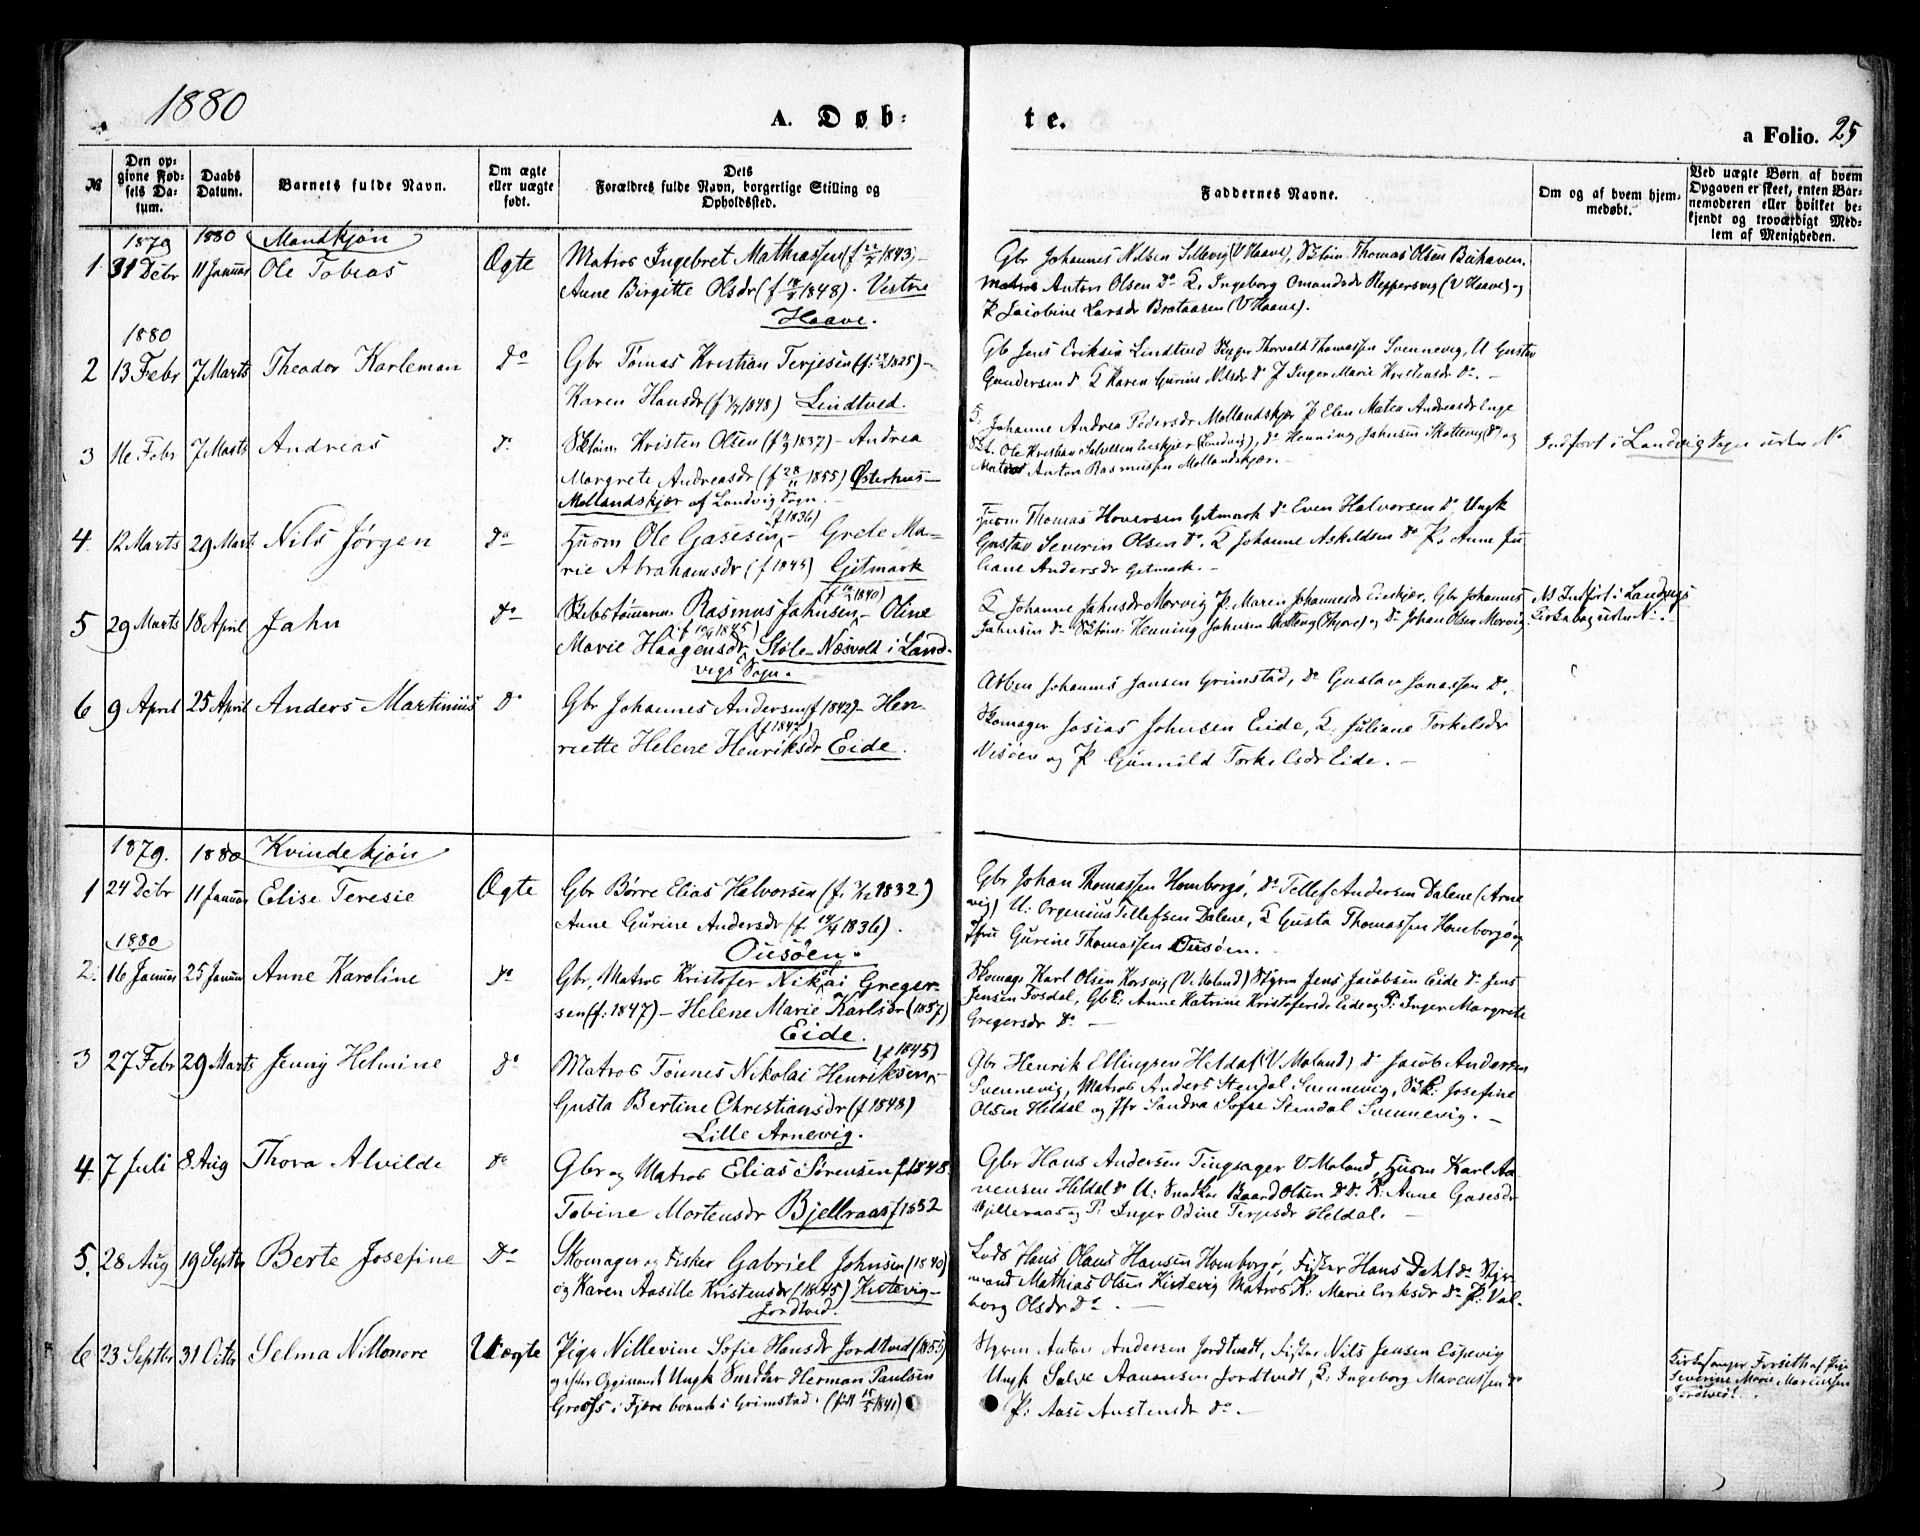 1880
A. Døb-
te.
a Folio. 25
№
Den op-
givne Fød-
sels Da-
tum.
Daabs
Datum.
Barnets fulde Navn.
Om ægte
eller uægte
født.
Dets
Forældres fulde Navn, borgerlige Stilling og
Opholdssted.
Faddernes Navne.
Om og af hvem hjem-
medøbt.
Ved uægte Børn af hvem
Opgaven er skeet, enten Bar-
nemoderen eller hvilket be-
kjendt og troværdigt Med-
lem af Menigheden.
1879 1880 Mandkjøn
1 31 Debr 11 Januar Ole Tobias Ægte Matros Ingebret Mathiassen (f 1843) -
Anne Birgitte Olsdr (f 1848). Vestre
Haave.
Gbr Johannes Nilsen Sillevig (V Haave), Thomas Olsen Beihaven.
Matros Anton Olsen Do Ingeborg Omundsdr Reppersvig (V Haave) og
P Jacobine Larsdr Brataasen (V Haave).
1880
2 13 Febr 7 Marts Theodor Karleman Do Gbr Tomas Kristian Terjesen (f: 1825) -
Karen Hansdr (f 1848) Lindtved.
Gb Jens Eriksen Lindtved Thorvald Thomassen Svennevig, U Gustav
Gundersen Do Karen Gurine Nilsdr Do P Inger Marie Do. -
3 16 Febr 7 Marts Andreas Do Kristen Olsen (f 1837) - Andrea
Margrete Andreasdr (f 28/11 1855) Østerhus-
Mollandskjær af Landvig Sogn. -
Johanne Andrea Pedersdr Mollandskjær P Elen Matea Andreasdr Enge
Ole Kristian (Landvig), Do Henning Jahnsen (Do) og
Matros Anton Rasmussen Mollandskjær. -
Indført i Landvig Sogn under No
4 12 Marts 29 Mart Nils Jørgen Do Huom Ole Gasesen (f 1836) - Grete Ma-
rie Abrahamsdr (f 1845) Gitmark
Huom Thomas Hoversen Gitmark Do Even Halvorsen Do, Ungk
Gustav Severin Olsen Do, Johanne Askildsen Do P. Anne Ju
liane Andersdr Gitmark. -
5 29 Marts 18 April Jahn Do Rasmus Jahnsen (f 1840) - Oline
Marie Haagensdr (f 1845) Støle-Næsvold i Land-
vigs Sogn.
Johanne Jahnsdr Morvig P. Maren Johannesdr Gbr Johannes
Jahnsen Do Henning Jahnsen og Do Johan Olsen Morvig
Ns Indført i Landvigs
Kirkebog under No.
6 9 April 25 April Anders Martinius Do Gbr Johannes Andersen (f 1842) - Hen-
riette Helene Henriksdr (f 1847) Eide.
Johannes Jansen Grimstad, Do Gustav Jonassen Do.
Skomager Josias Johnsen Eide, Juliane Torkelsdr
og P Gunnild Torkelsdr Eide. -
1879. 1880 Kvindekjøn
1 24 Debr 11 Januar Elise Teresie Ægte Gbr Børre Elias Halvorsen (f. 1832)
Anne Gurine Andersdr (f 1836).
Ousöen.
Gbr Johan Thomassen Homborgø, Do Tellef Andersen Dalene (Arne
vig) U: Orgenius Tellefsen Dalene, Gusta Thomassen Homborgø og
Gurine Thomassen Ousøen. -
1880
2. 16 Januar 25 Januar Anne Karoline Do Gbr, Matros Kristofer Nikolai Greger-
sen (f: 1847) - Helene Marie Karlsdr (1857)
Eide.
Skomag. Karl Olsen Korsvig (V. Moland) Styrm Jens Jacobsen Eide Do Jens
Jensen Fosdal, Anne Katrine Kristofersdr Eide og P: Inger Margrete
Gregersdr Do -
3 27 Febr 29 Marts Jenny Helmine Do Matros Tønnes Nikolai Henriksen (f 1845) -
Gusta Bertine Christiansdr (f 1848)
Lille Arnevig.
Gbr Henrik Ellingsen Heldal (V. Moland) Do Jacob Andersen
Svennevig, Matros Anders Stendal Svennevig, Josefine
Olsen Heldal og Jfr Sandra Sofie Stendal Svennevig. -
4. 7 Juli 8. Aug Thora Alvilde Do Gbr og Matros Elias Sørensen f. 1848
Tobine Mortensdr Bjellraas f 1852
Gbr Hans Andersen Tingsager V. Moland, Huom Karl Aa-
nensen Heldal Do U: Snedker Baard Olsen Do K: Anne Gasesdr
Bjelleraas og P: Inger Odine Terjesdr Heldal. -
5. 28 Aug 19 Septbr Berte Josefine Do Skomager og Fisker Gabriel Johnsen (1840)
og Karen Aasille Kristensdr (1845) Kistevig-
Jordtved.
Lods Hans Olaus Hansen Homborgø, Fisker Hans Dahl Do Styr-
mand Mathias Olsen Kistevig Matros K: Marie Eriksdr Do P: Val-
borg Olsdr Do. -
6 23 Septbr 31 Octbr Selma Nillonore Uægte Pige Nillevine Sofie Hansdr Jordtved (1855)
og efter Opgivende Ungk Snedker Herman Paulsen
Groofs i Fjære boende i Grimstad. (født 1841)
Styrm Anton Andersen Jordtvedt, Fisker Nils Jensen Espevig
Ungk Salve Aanonsen Jordtvedt, Ingeborg Marcussen Do
P: Aase Austensdr Do. -
Kirkesanger Forseth af Pige
Severine Marie Marcussen
Jordtvedt.